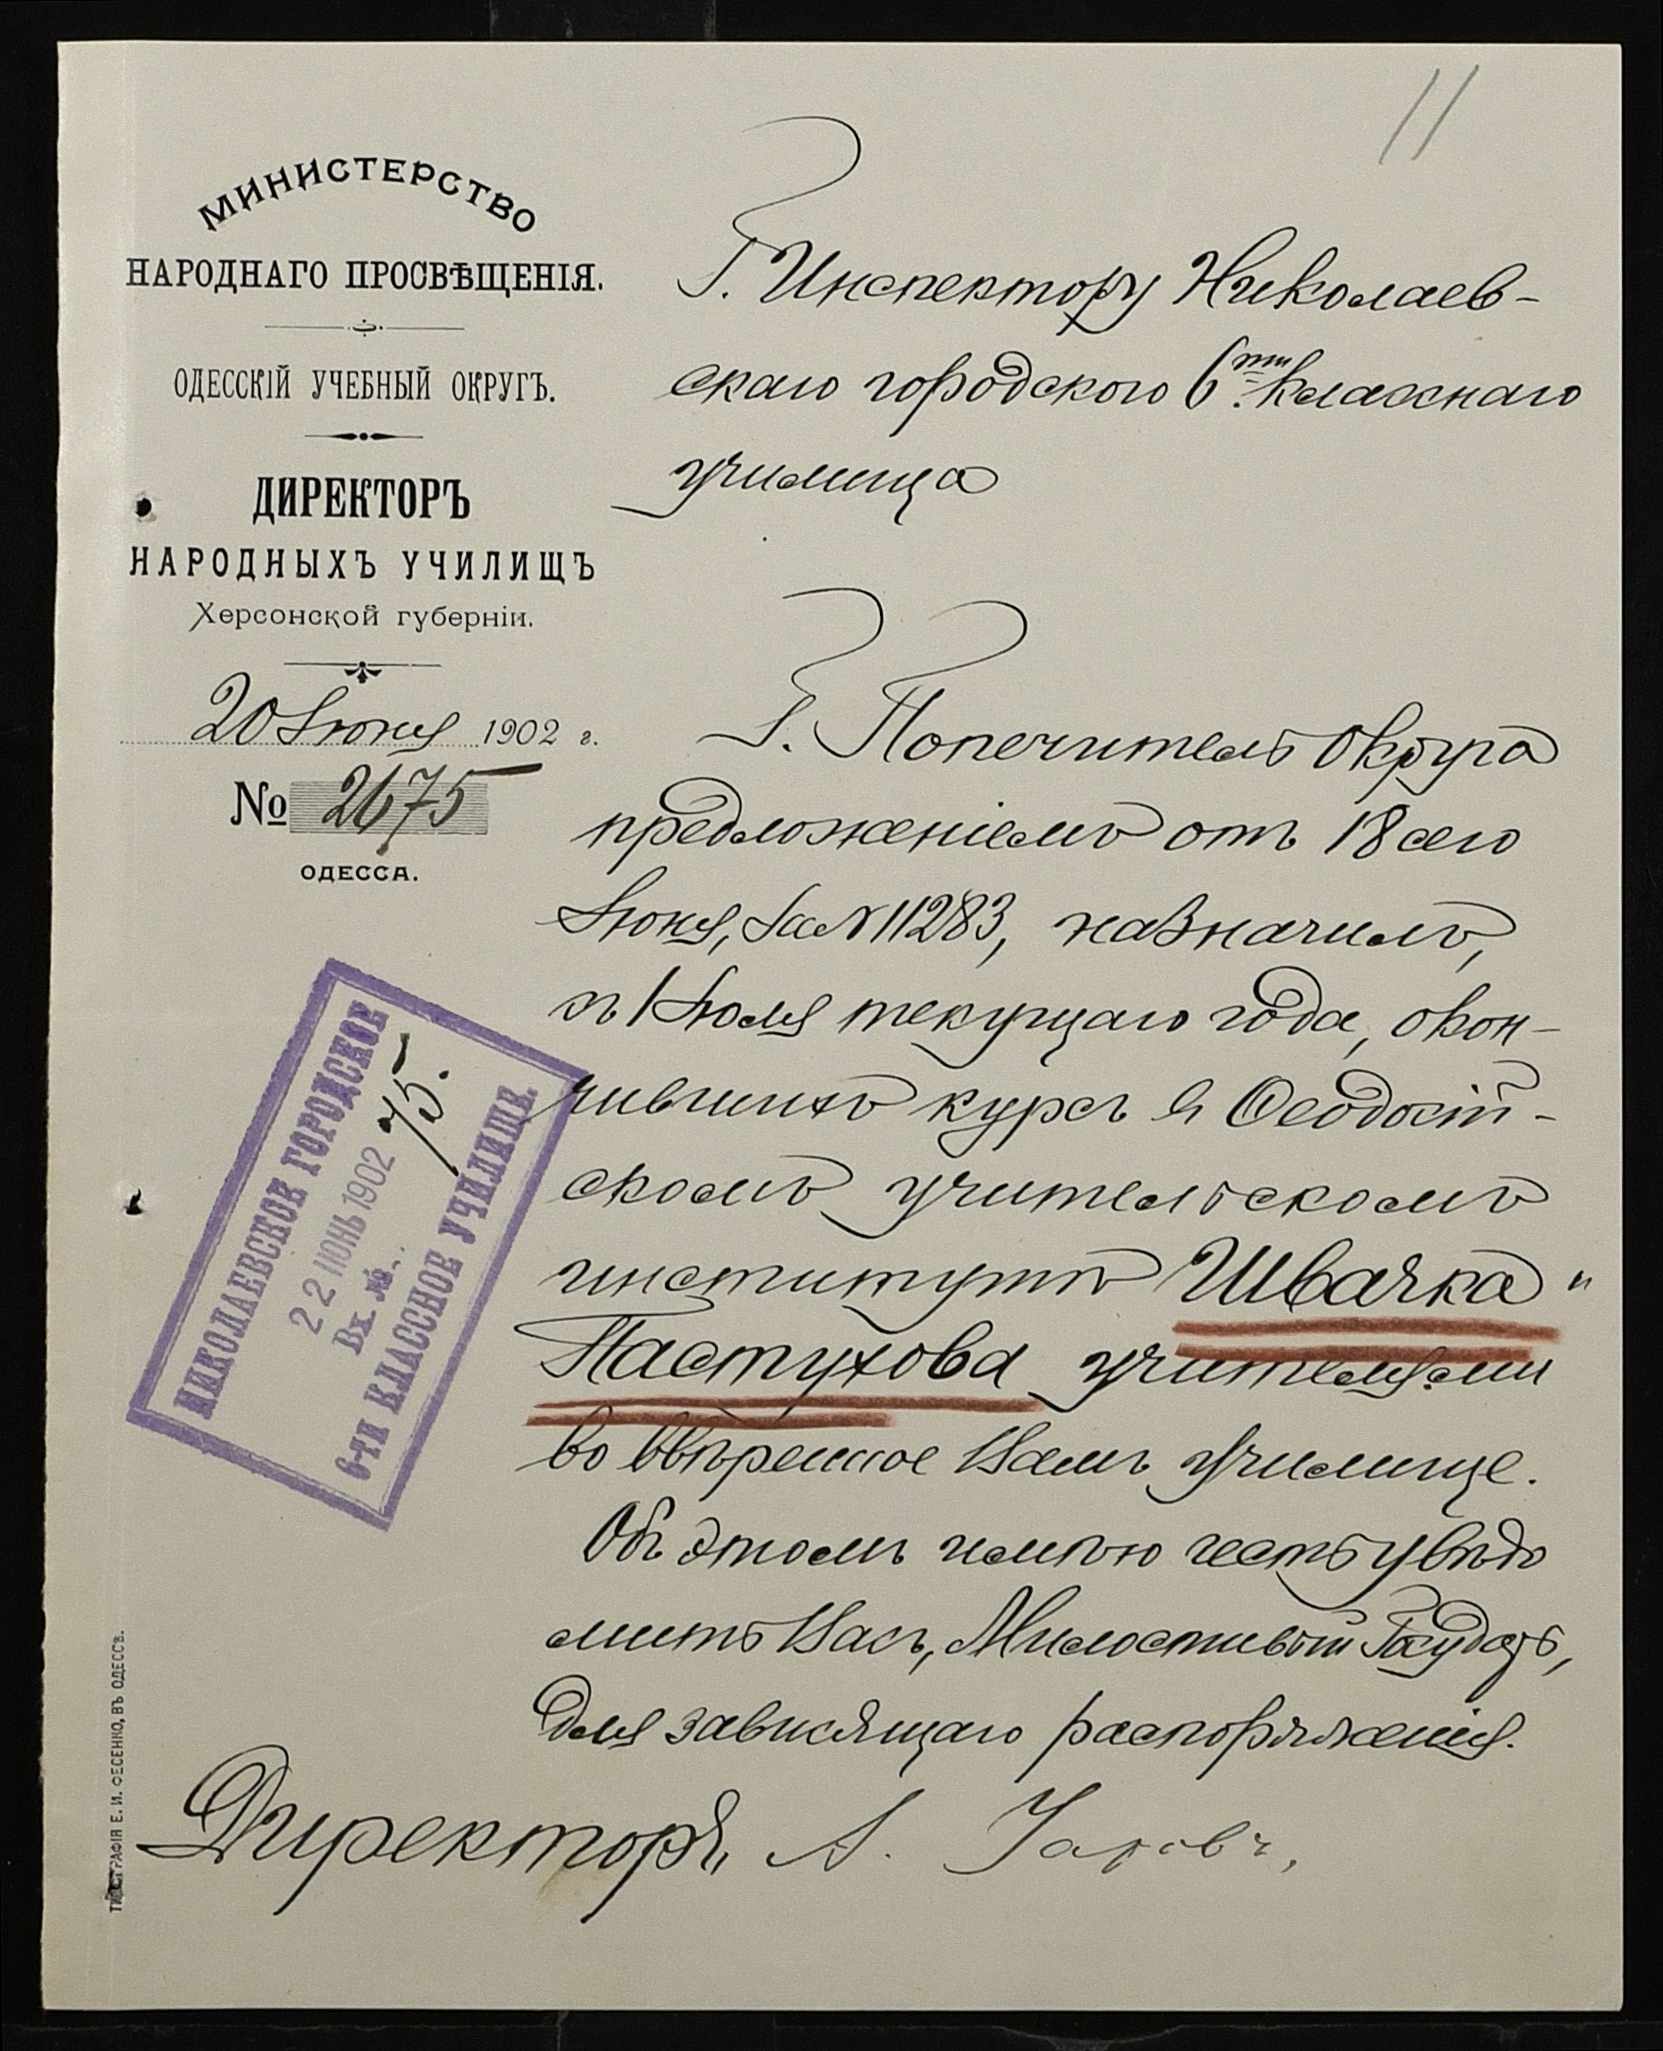 11
МИНИСТЕРСТВО
НАРОДНАГО ПРОСВѢЩЕНІЯ.
ОДЕССКІЙ УЧЕБНЫЙ ОКРУГЪ.
ДИРЕКТОРЪ
НАРОДНЫХЪ УЧИЛИЩЪ
Херсонской губерніи.
20 Іюня 1902 г.
№ 2675
ОДЕССА.
Г. Инспектору Николаев-
скаго городского 6ти класснаго
училища
Г. Попечитель Округа
предложеніемъ отъ 18 сего
Іюня, за № 11283, назначилъ,
съ 1 Іюля текущаго года, окон-
чившихъ курсъ въ Ѳеодосій-
скомъ учительскомъ
институтѣ Швачка и
Пастухова учителями
во ввѣренное Вамъ училище.
Объ этомъ имѣю честь увѣдо
мить Васъ, Милостивый Государь,
для зависящаго распоряженія.
Директоръ А.
НИКОЛАЕВСКОЕ ГОРОДСКОЕ
22 ІЮНЬ 1902
Вх. №. 75.
6-ТИ КЛАССНОЕ УЧИЛИЩЕ.
ТИПОГРАФІЯ Е. И. ФЕСЕНКО, ВЪ ОДЕССѢ.